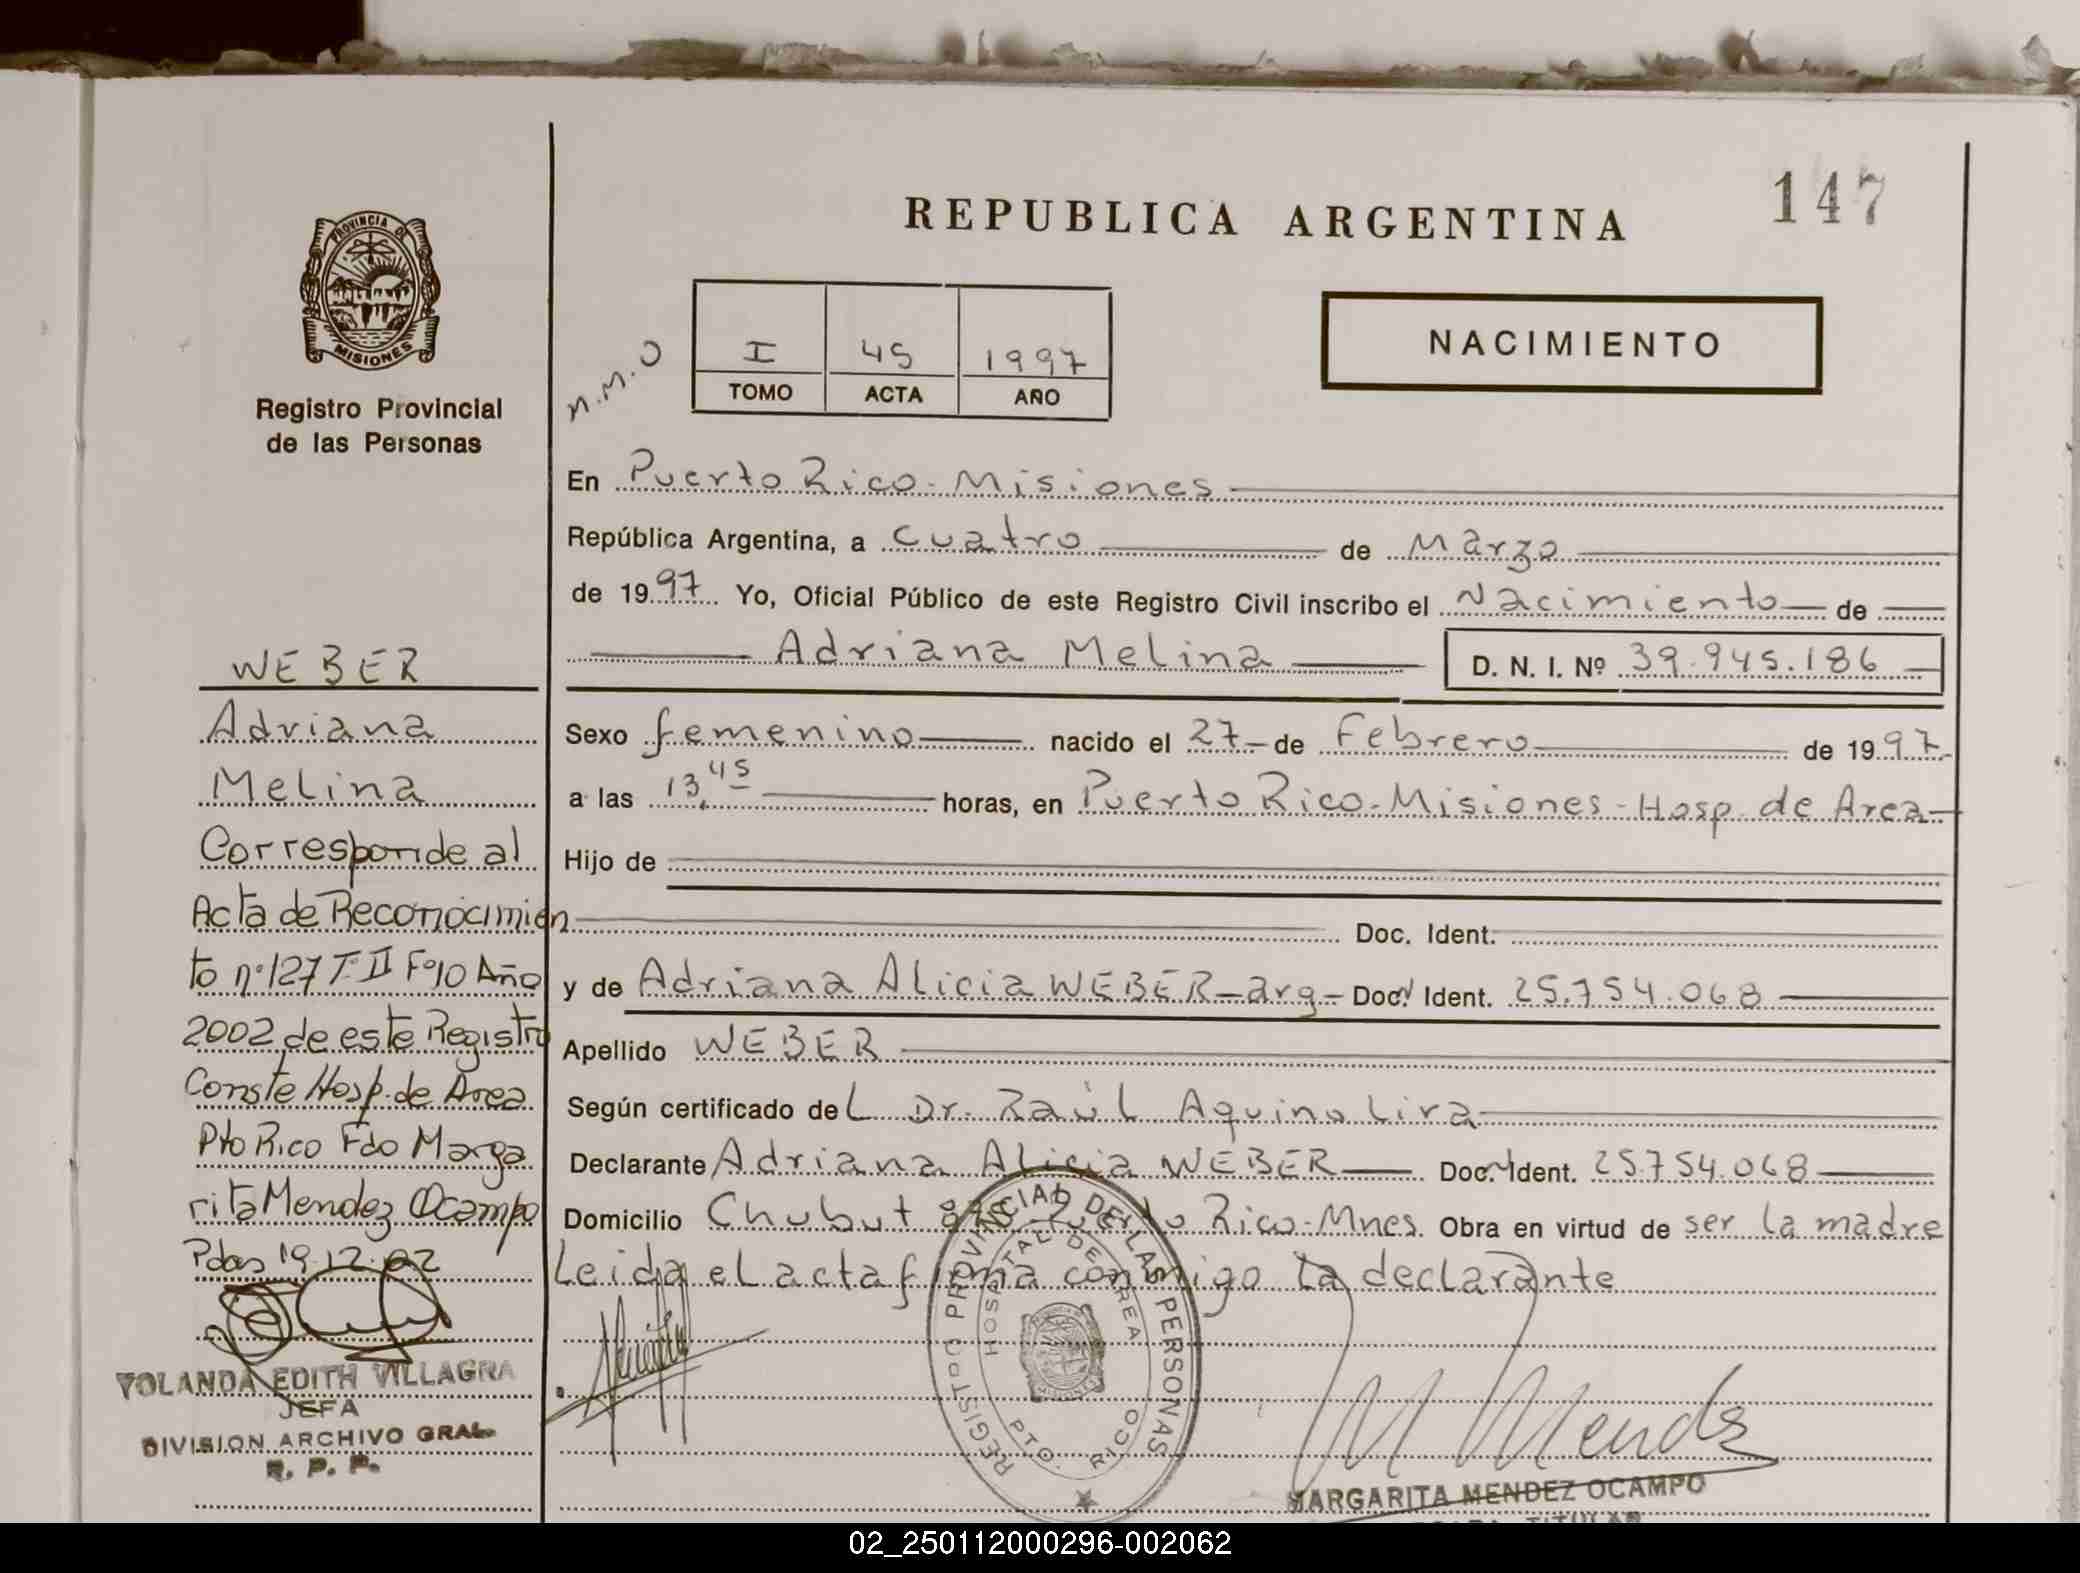 147
REPUBLICA ARGENTINA
PROVINCIA DE
MISIONES
Registro Provincial
de las Personas
N.M.O
I 45 1997
TOMO ACTA AÑO
NACIMIENTO
En Puerto Rico - Misiones
República Argentina, a cuatro de Marzo
de 1997 Yo, Oficial Público de este Registro Civil inscribo el Nacimiento de
Adriana Melina D. N. I. Nº 39.945.186
Sexo femenino nacido el 27 de Febrero de 1997
a las 13,45 horas, en Puerto Rico - Misiones - Hosp. de Area
Hijo de
Doc. Ident.
y de Adriana Alicia WEBER - arg - Doc. Ident. 25.754.068
Apellido WEBER
Según certificado del Dr. Raúl Aquino Lira
Declarante Adriana Alicia WEBER Doc. Ident. 25.754.068
Domicilio Chubut Puerto Rico - Mnes. Obra en virtud de ser la madre
Leida el acta firma conmigo la declarante
WEBER
Adriana
Melina
Corresponde al
Acta de Reconocimien
to nº 127 Tº II Fº 10 Año
2002 de este Registro
Conste Hosp. de Area
Pto Rico Fdo Marga
rita Mendez Ocampo
Pdas 19.12.02
YOLANDA EDITH VILLAGRA
JEFA
DIVISION ARCHIVO GRAL.
R. P. P.
REGISTRO PROVINCIAL DE LAS PERSONAS
HOSPITAL DE AREA
PTO. RICO
M Mendez
MARGARITA MENDEZ OCAMPO
TITULAR
02_250112000296-002062